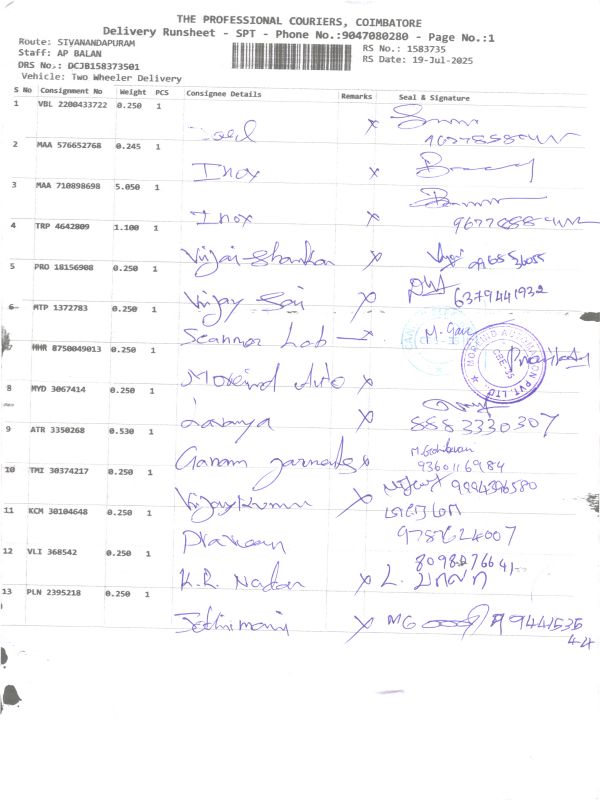 THE PROFESSIONAL COURIERS, COIMBATORE
Delivery Runsheet - SPT - Phone No.:9047080280 - Page No.:1
Route: SIVANANDAPURAM
Staff: AP BALAN
DRS No.: DCJB158373501
Vehicle: Two Wheeler Delivery
RS No.: 1583735
RS Date: 19-Jul-2025
S No Consignment No Weight PCS Consignee Details Remarks Seal & Signature
1 VBL 2200433722 0.250 1 x
2 MAA 576652768 0.245 1 Inox x
3 MAA 710898698 5.050 1 Inox x
4 TRP 4642809 1.100 1 Vijai Shankar x
5 PRO 18156908 0.250 1 Vijay Sai x 6379441932
6 MTP 1372783 0.250 1 Scanner Lab x
7 MMR 8750049013 0.250 1 Moreind Auto x
8 MYD 3067414 0.250 1 Lavanya x 8883330307
9 ATR 3350268 0.530 1 Ganam garments x 9360116984
10 TMI 30374217 0.250 1 Vijaykumar x 9994396580
11 KCM 30104648 0.250 1 Praveen 9787624007
12 VLI 368542 0.250 1 K.R. Nadar x L.
13 PLN 2395218 0.250 1 x MG 9441535